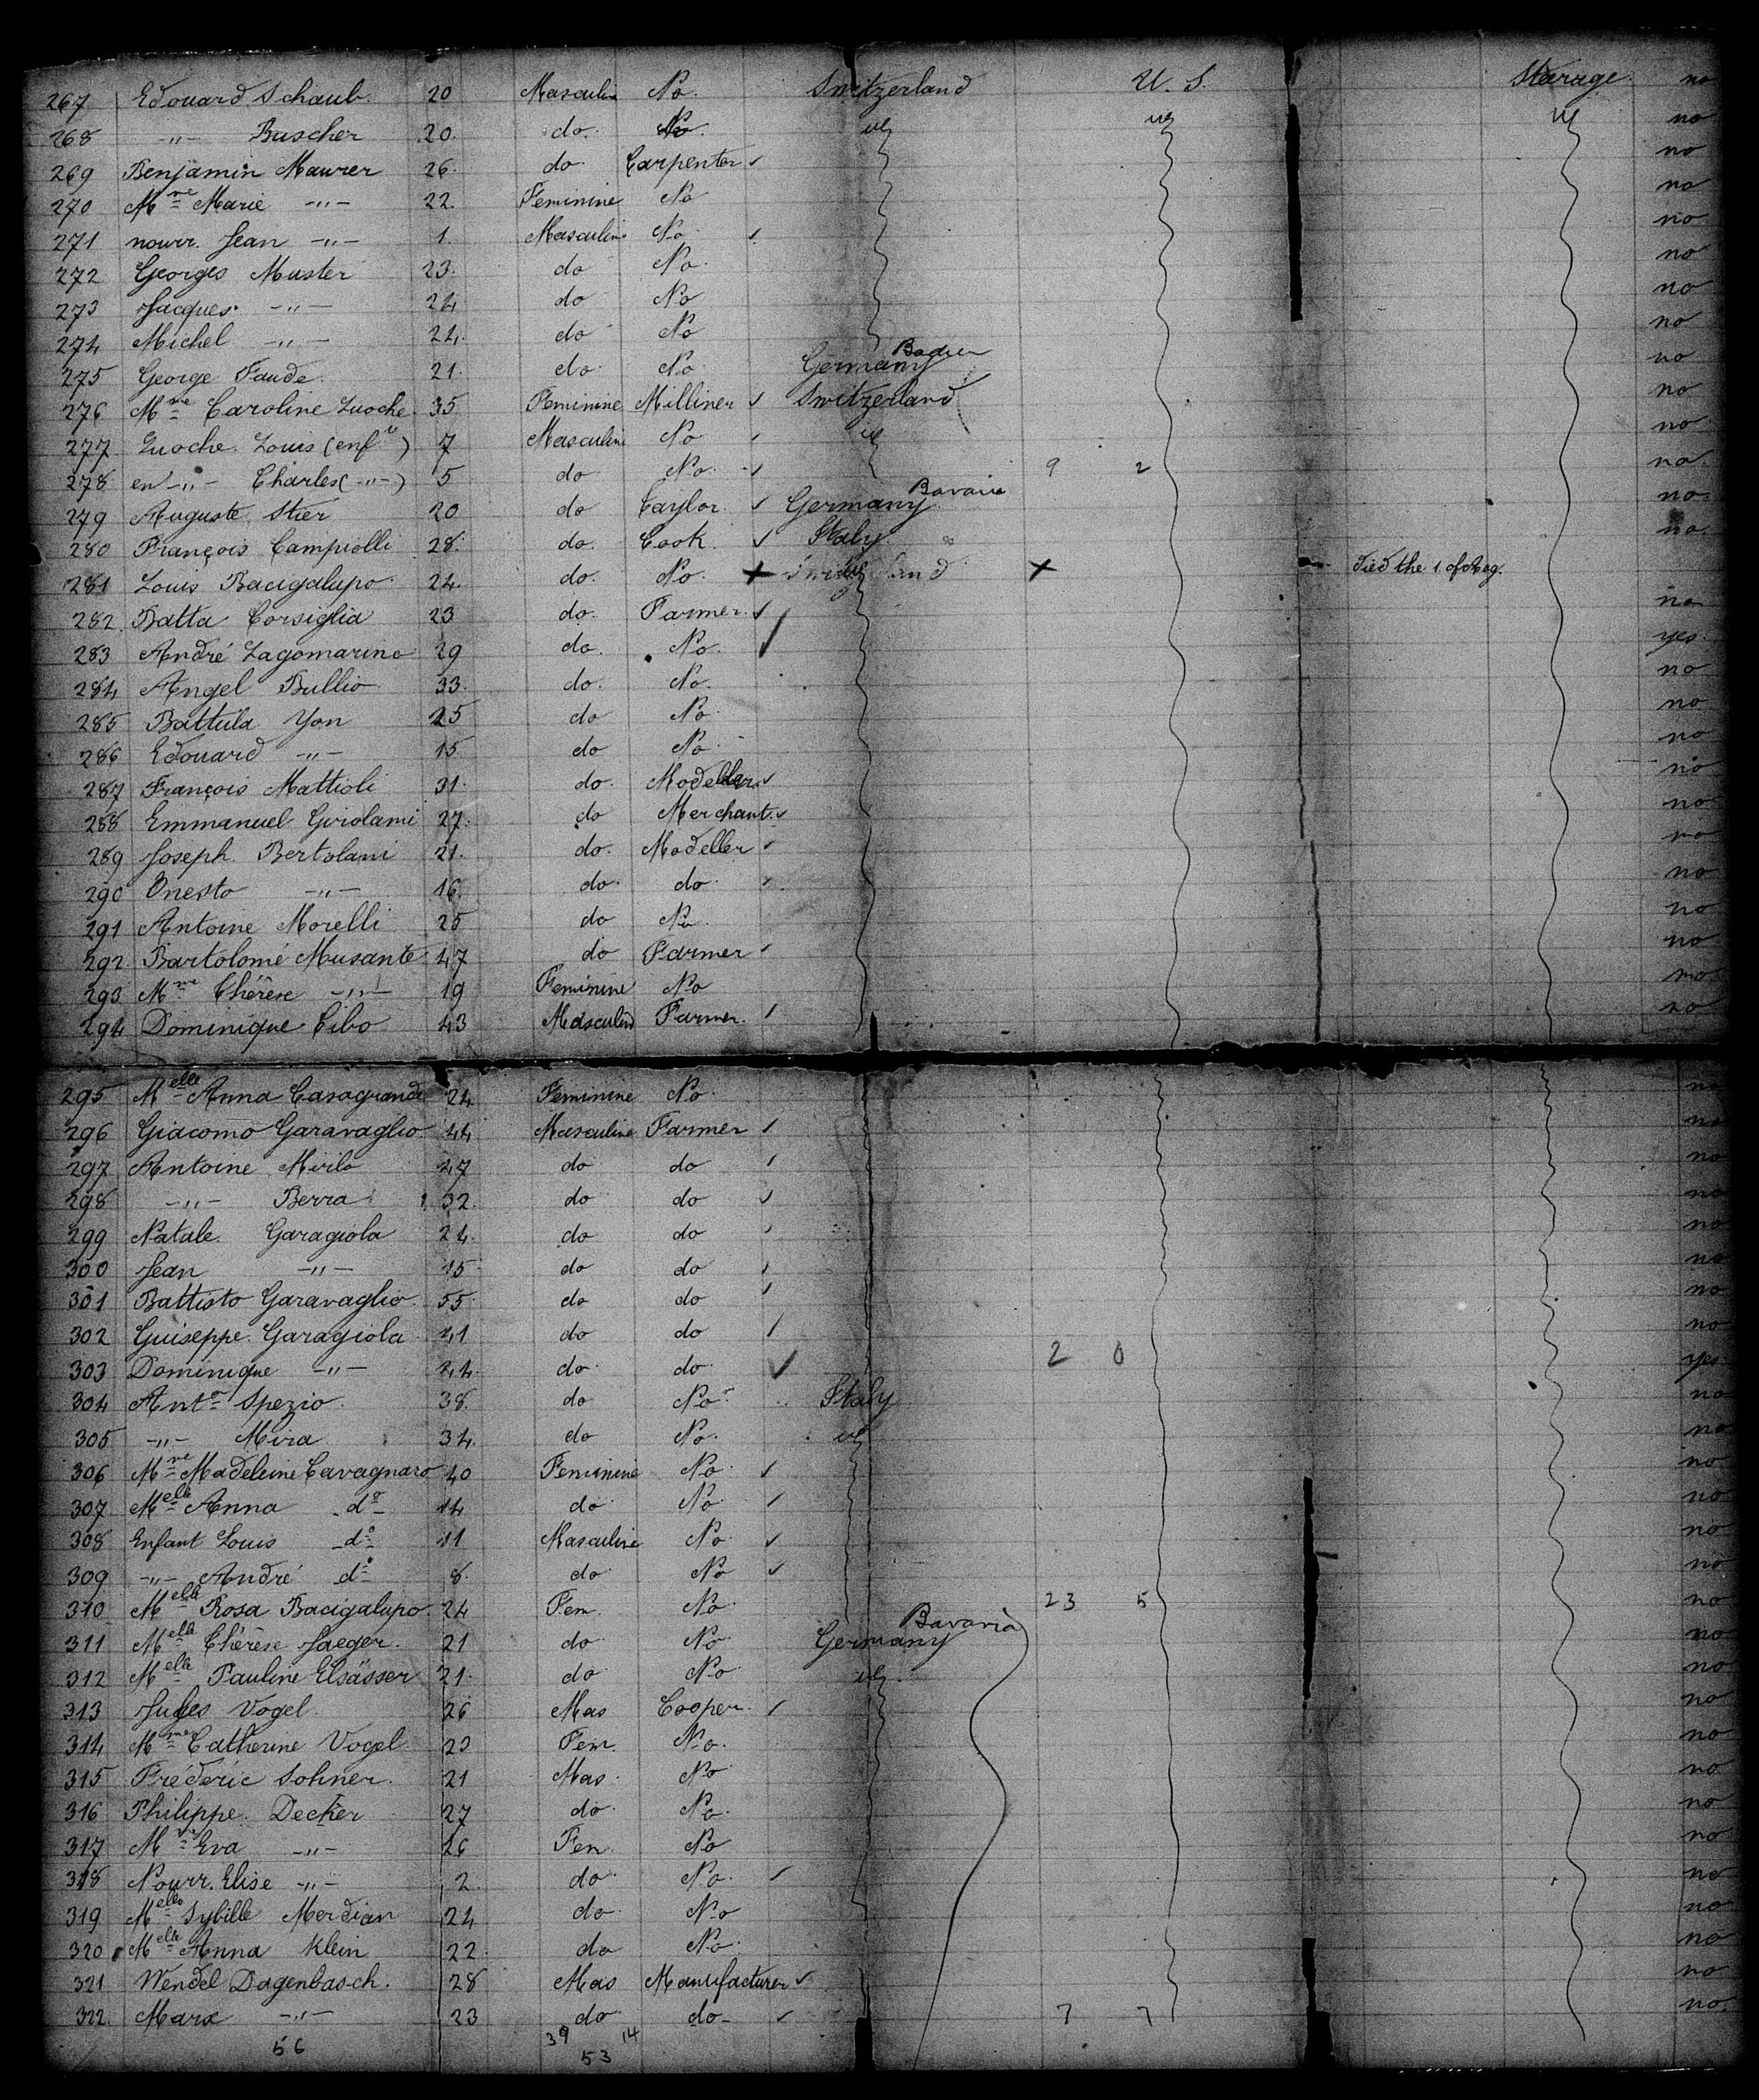 267 Edouard Schaub. 20 Masculin No. Switzerland U. S. Starage. no
268 -"- Buscher 20. do. No. no
269 Benjamin Maurer 26. do Carpenter no
270 Mme Marie -"- 22. Feminine No no
271 nourr. Jean -"- 1. Masculin No no
272 Georges Muster 23. do No. no
273 Jacques -"- 24 do No no
274 Michel -"- 24. do No no
275 George Faude. 21. do No. Germany Baden no
276 Mme Caroline Luoche. 35 Feminine Milliner Switzerland no
277 Luoche. Louis (enft) 7 Masculin No no
278 en -"- Charles (-"-) 5 do No. 9 2 no.
279 Auguste Stier 20 do Taylor. Germany Bavaria no.
280 François Campiolli 28. do. Cook. Italy no.
281 Louis Bacigalupo. 24. do. No. X X died the 1. of Aug.
282. Batta Corsiglia 23 do. Farmer. no
283 André Lagomarino 29 do. No. yes.
284 Angel Bullio 33. do. No. no
285 Battula Yon 25 do No. no
286 Edouard -"- 15 do No. no
287 François Mattioli 31. do. Modeller no
288 Emmanuel Girolami 27. do Merchant. no
289 Joseph Bertolani 21. do. Modeller no
290 Onesto -"- 16. do. do. no
291 Antoine Morelli 25 do No. no
292. Bartolomé Musante 47 do Farmer no
293 Mme Thérèse -"- 19 Feminine No no
294 Dominique Cibo 43 Masculin Farmer. no
295 Melle Anna Casagrande 24 Feminine No. no
296 Giacomo Garavaglio. 44 Masculine Farmer no
297 Antoine Mirilo 47 do do no
298 -"- Berra 32. do do no
299 Natale. Garagiola 24. do do no
300 Jean -"- 15 do do no
301 Battisto Garavaglio. 55. do do no
302 Guiseppe Garagiola 41 do do no
303 Dominique -"- 44. do. do. 2 0 yes
304 Anto Spezio. 38. do No. Italy no
305 -"- Mira 34. do No. no
306 Mme Madeleine Cavagnaro 40 Feminine No. no
307 Melle Anna do 14 do No. no
308 Enfant Louis do 11 Masculine No. no
309 -"- André do 8. do. No no
310 Melle Rosa Bacigalupo. 24 Fem. No. 23 5 no
311 Melle Thérèse Jaeger. 21 do. No. Germany Bavaria no
312 Melle Pauline Elsässer 21. do No. no
313 Jules Vogel. 26 Mas Cooper. no
314 Mme Catherine Vogel 23 Fem. No. no
315 Fréderic Sohner. 21 Mas. No. no
316 Philippe Decker 27 do. No. no
317 Mme Eva -"- 26 Fem No no
318 Nourr. Elise -"- 2. do. No. no
319 Melle Sybille Merdian 24 do. No no
320 Melle Anna Klein 22. do No. no
321 Wendel Dagenbasch. 28 Mas Manufacturer no
322. Marx -"- 23 do. do- 7 7 no.
56 39 14
53